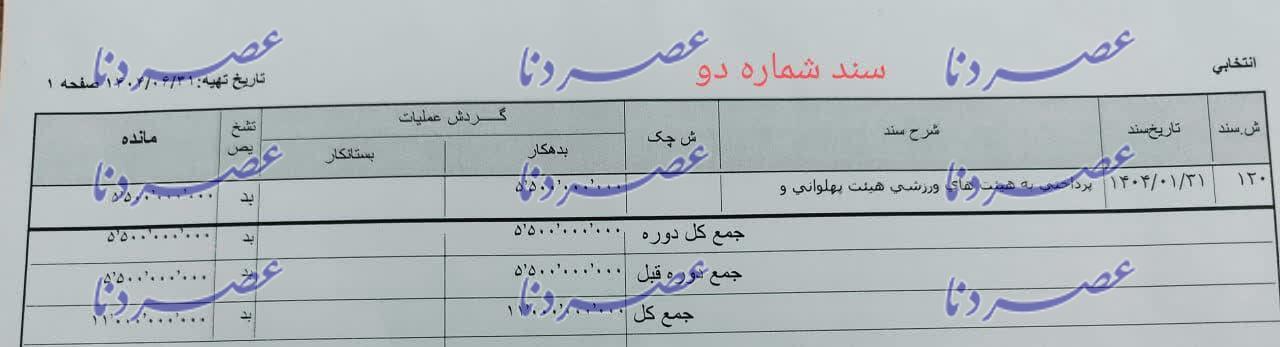 انتخابي
سند شماره دو
تاریخ تهیه: ۱۴۰۴/۰۶/۳۱ صفحه ۱
ش.سند تاریخ‌سند شرح سند ش چک گردش عملیات تشخیص مانده
بدهکار بستانکار
۱۲۰ ۱۴۰۴/۰۱/۳۱ پرداختي به هیئت هاي ورزشي هیئت پهلواني و ۵٬۵۰۰٬۰۰۰٬۰۰۰ بد ۵٬۵۰۰٬۰۰۰٬۰۰۰
جمع کل دوره ۵٬۵۰۰٬۰۰۰٬۰۰۰ بد ۵٬۵۰۰٬۰۰۰٬۰۰۰
جمع دوره قبل ۵٬۵۰۰٬۰۰۰٬۰۰۰ بد ۵٬۵۰۰٬۰۰۰٬۰۰۰
جمع کل ۱۱٬۰۰۰٬۰۰۰٬۰۰۰ بد ۱۱٬۰۰۰٬۰۰۰٬۰۰۰
عصر دنا
عصر دنا
عصر دنا
عصر دنا
عصر دنا
عصر دنا
عصر دنا
عصر دنا
عصر دنا